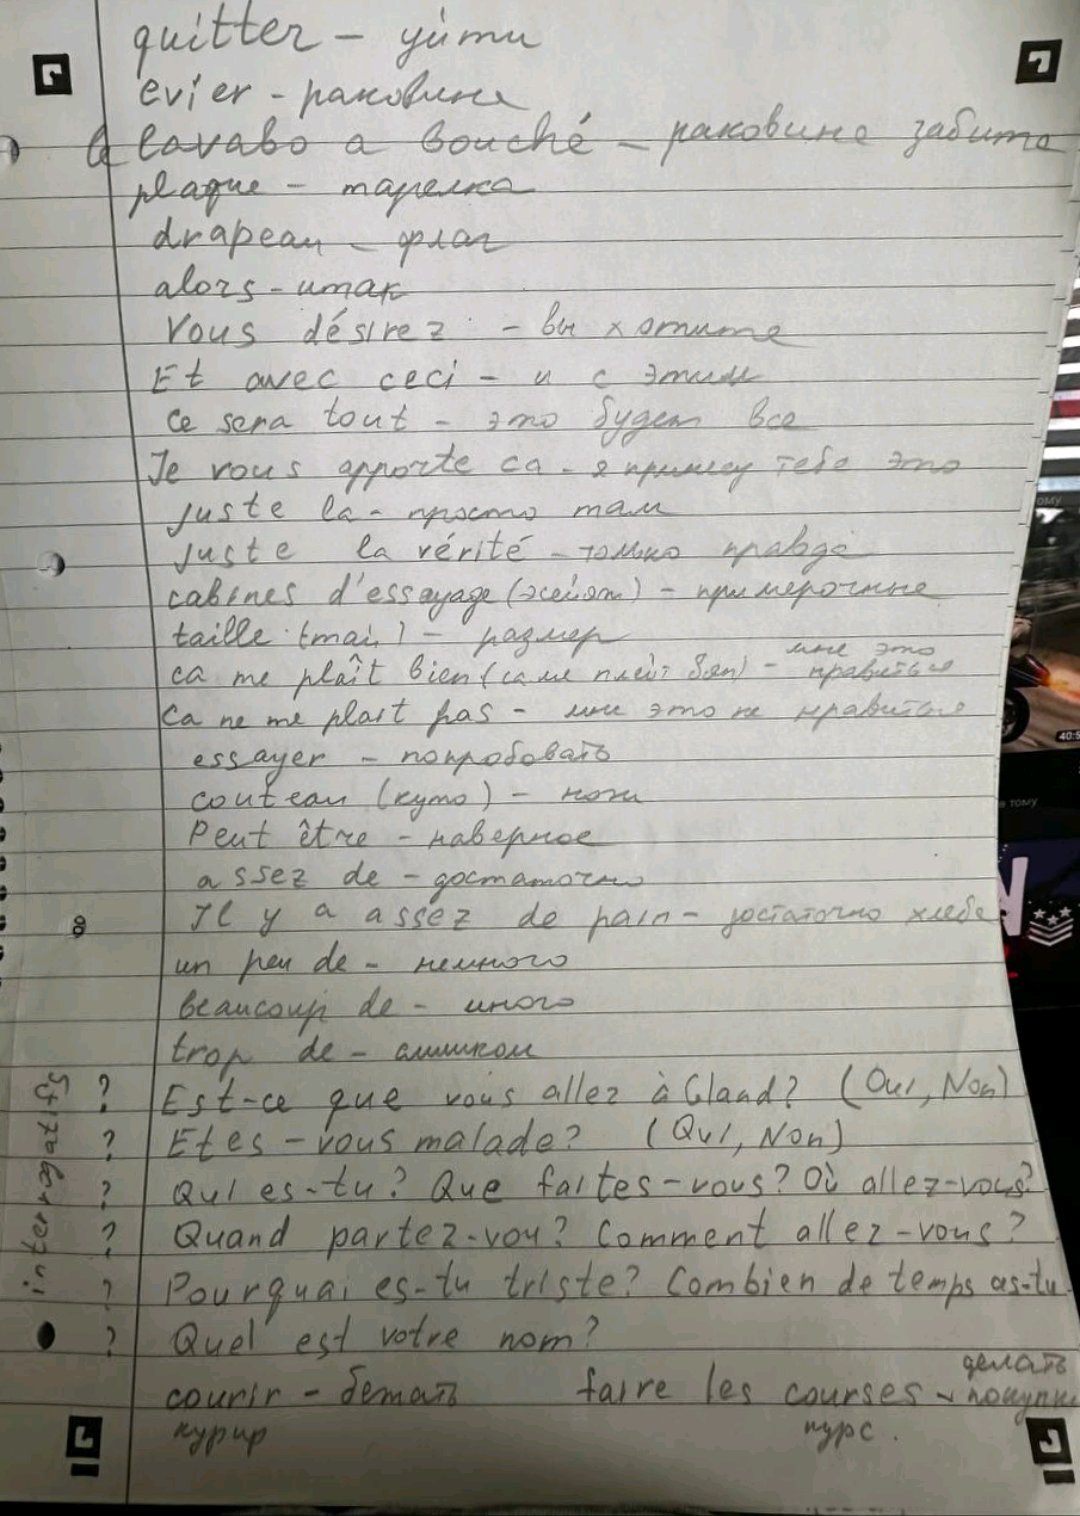 quitter – уйти
evier – раковина
le lavabo a bouché – раковина забита
plaque – тарелка
drapeau – флаг
alors – итак
Vous désirez – вы хотите
Et avec ceci – и с этим
Ce sera tout – это будет все
Je vous apporte ca – я принесу тебе это
juste la – просто там
juste la vérité – только правда
cabines d'essayage (эсейяж) – примерочные
taille (тай) – размер
ca me plaît bien (са ме плейт бян) – мне это нравиться
Ca ne me plait pas – мне это не нравиться
essayer – попробовать
couteau (куто) – нож
Peut être – наверное
assez de – достаточно
Il y a assez de pain – достаточно хлеба
un peu de – немного
beaucoup de – много
trop de – слишком
interrogatifs
? Est-ce que vous allez à Gland? (Oui, Non)
? Etes-vous malade? (Oui, Non)
? Qui es-tu? Que faites-vous? Où allez-vous?
? Quand partez-vou? Comment allez-vous?
? Pourquoi es-tu triste? Combien de temps as-tu
? Quel est votre nom?
courir – бегать faire les courses – делать покупки
курир курс.
40:5